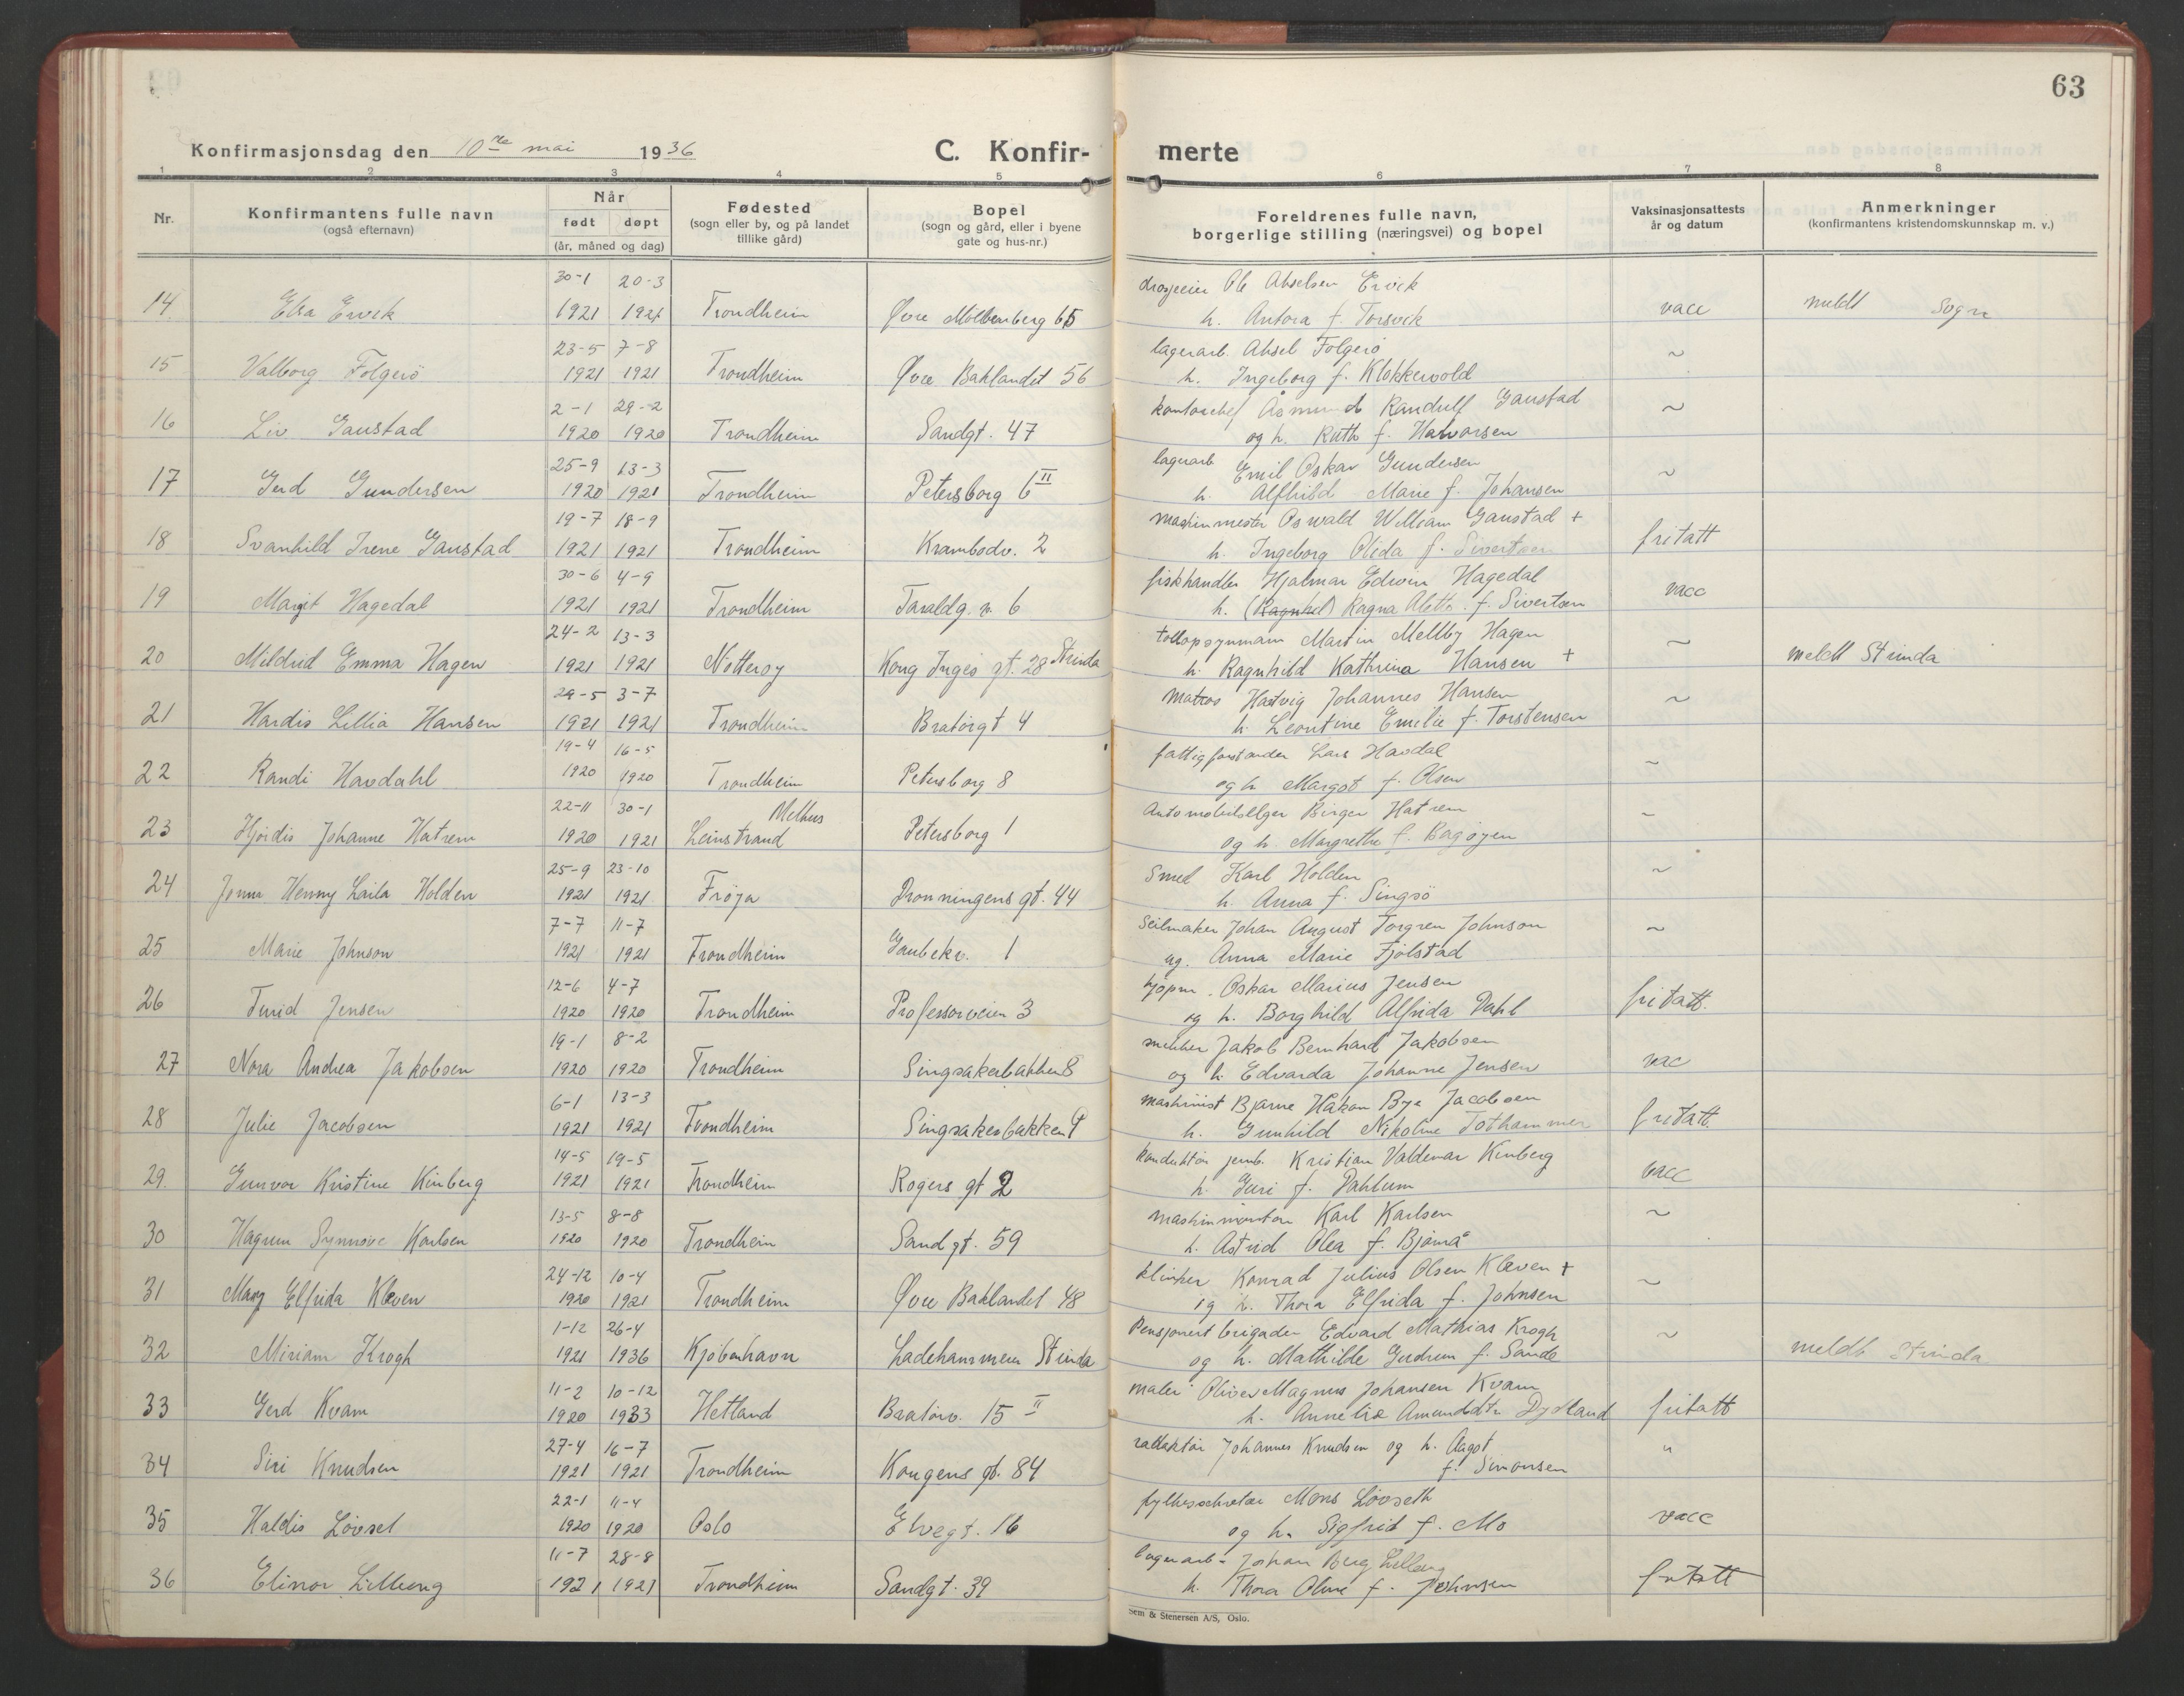 63
Konfirmasjonsdag den 10de mai 1936
C. Konfir- merte
1 2 3 4 5 6 7 8
Nr. Konfirmantens fulle navn (også efternavn)
Når født døpt (år, måned og dag)
Fødested (sogn eller by, og på landet tillike gård)
Bopel (sogn og gård, eller i byene gate og hus-nr.)
Foreldrenes fulle navn, borgerlige stilling (næringsvei) og bopel
Vaksinasjonsattests år og datum
Anmerkninger (konfirmantens kristendomskunnskap m. v.)
30-1 20-3 Ole Akselsen Ervik
14 Elsa Ervik 1921 1921 Trondheim Øvre Møllenberg 65 h. Antora f. Torsvik vacc meldt Sogn
23-5 7-8 lagerarb. Aksel Folgerö ~
15 Valborg Folgerö 1921 1921 Trondheim Øvre Baklandet 56 h. Ingeborg f. Klokkervold
2-1 29-2 kontorchef Åsmund Randulf Gaustad ~
16 Liv Gaustad 1920 1920 Trondheim Sandgt. 47 og h. Ruth f. Halvorsen
25-9 13-3 lagerarb Emil Oskar Gundersen ~
17 Gerd Gundersen 1920 1921 Trondheim Petersborg 6 II h. Alfhild Marie f. Johansen
19-7 18-9 maskinmester Oswald William Gaustad +
18 Svanhild Irene Gaustad 1921 1921 Trondheim Krambodv. 2 h. Ingeborg Olida f. Sivertsen fritatt
30-6 4-9 fiskhandler Hjalmar Edvin Hagedal
19 Margit Hagedal 1921 1921 Trondheim Taraldg. v. 6 h. (Ragnhil) Ragna Aletta f. Sivertsen vacc
24-2 13-3 tollopsynmann Martin Mellby Hagen ~
20 Mildrid Emma Hagen 1921 1921 Nøtterøy Kong Inges gt. 28 Strinda h. Ragnhild Kathrina Hansen + meldt Strinda
29-5 3-7 Matros Hartvig Johannes Hansen ~
21 Hardis Lillia Hansen 1921 1921 Trondheim Bratörgt 4 h. Leontine Emilie f. Torstensen
19-4 16-5 fattigforstander Lars Havdal ~
22 Randi Havdahl 1920 1920 Trondheim Petersborg 8 og h Margot f. Olsen
22-11 30-1 Melhus Automobilselger Birger Hatrem ~
23 Hjördis Johanne Hatrem 1920 1921 Leinstrand Petersborg 1 og h. Margrethe f. Bagøyen
25-9 23-10 Smed Karl Holden ~
24 Henny Laila Holden 1921 1921 Frøya Dronningens gt. 44 h. Anna f. Singsö
7-7 11-7 Seilmaker Johan August Torgren Johnson ~
25 Marie Johnson 1921 1921 Trondheim Gaubekv. 1 og. Anna Marie Fjölstad
12-6 4-7 kjøpm. Oskar Marius Jensen
26 Turid Jensen 1920 1920 Trondheim Professorveien 3 og h. Borghild Alfrida Dahl fritatt.
19-1 8-2 snekker Jakob Bernhard Jakobsen
27 Nora Andrea Jakobsen 1920 1920 Trondheim Singsakerbakken 8 og h. Edvarda Johanne Jensen vac
6-1 13-3 maskinist Bjarne Håkon Bye Jacobsen
28 Julie Jacobsen 1921 1921 Trondheim Singsakerbakken 9 h. Gunhild Nikoline Tothammer fritatt.
14-5 19-5 konduktör jernb. Kristian Valdemar Kinberg
29. Gunvor Kristine Kinberg 1921 1921 Trondheim Rogers gt 2 h. Guri f. Dahlum vacc
13-5 8-8 maskinmontör Karl Karlsen ~
30 Synnøve Karlsen 1920 1920 Trondheim Sandgt. 59 h. Astrid Olea f. Bjørnå
24-12 10-4 klinker Konrad Julius Olsen Kleven + ~
31 Mary Elfrida Kleven 1920 1921 Trondheim Øvre Baklandet 48 og h. Thora Elfrida f. Johnsen
1-12 26-4 Pensjonert brigader Edvard Mathias Krogh ~
32 Miriam Krogh 1921 1936 Kjöbenhavn Ladehammeren Strinda og h. Mathilde Gudrun f. Sande meldt Strinda
11-2 10-12 maler Oliver Magnus Johansen Kvam
33 Gerd Kvam 1920 1933 Hetland Bratörv. 15 II h. Anne Lise Amundsdtr fritatt
27-4 16-7 redaktör Johannes Knudsen og h. Aagot "
34 Siri Knudsen 1921 1921 Trondheim Kongens gt. 84 f. Simonsen
22-1 11-4 fylkessekretær Mons Lövseth
35 Haldis Lövset 1920 1920 Oslo Elvegt. 16 og h. Sigfrid f. Mo vacc
11-7 28-8 lagerarb. Johan Berg Lilleeng
36 Elinor Lilleeng 1921 1921 Trondheim Sandgt. 39 h. Thora Oline f. Johnsen fritatt
Sem & Stenersen A/S, Oslo.